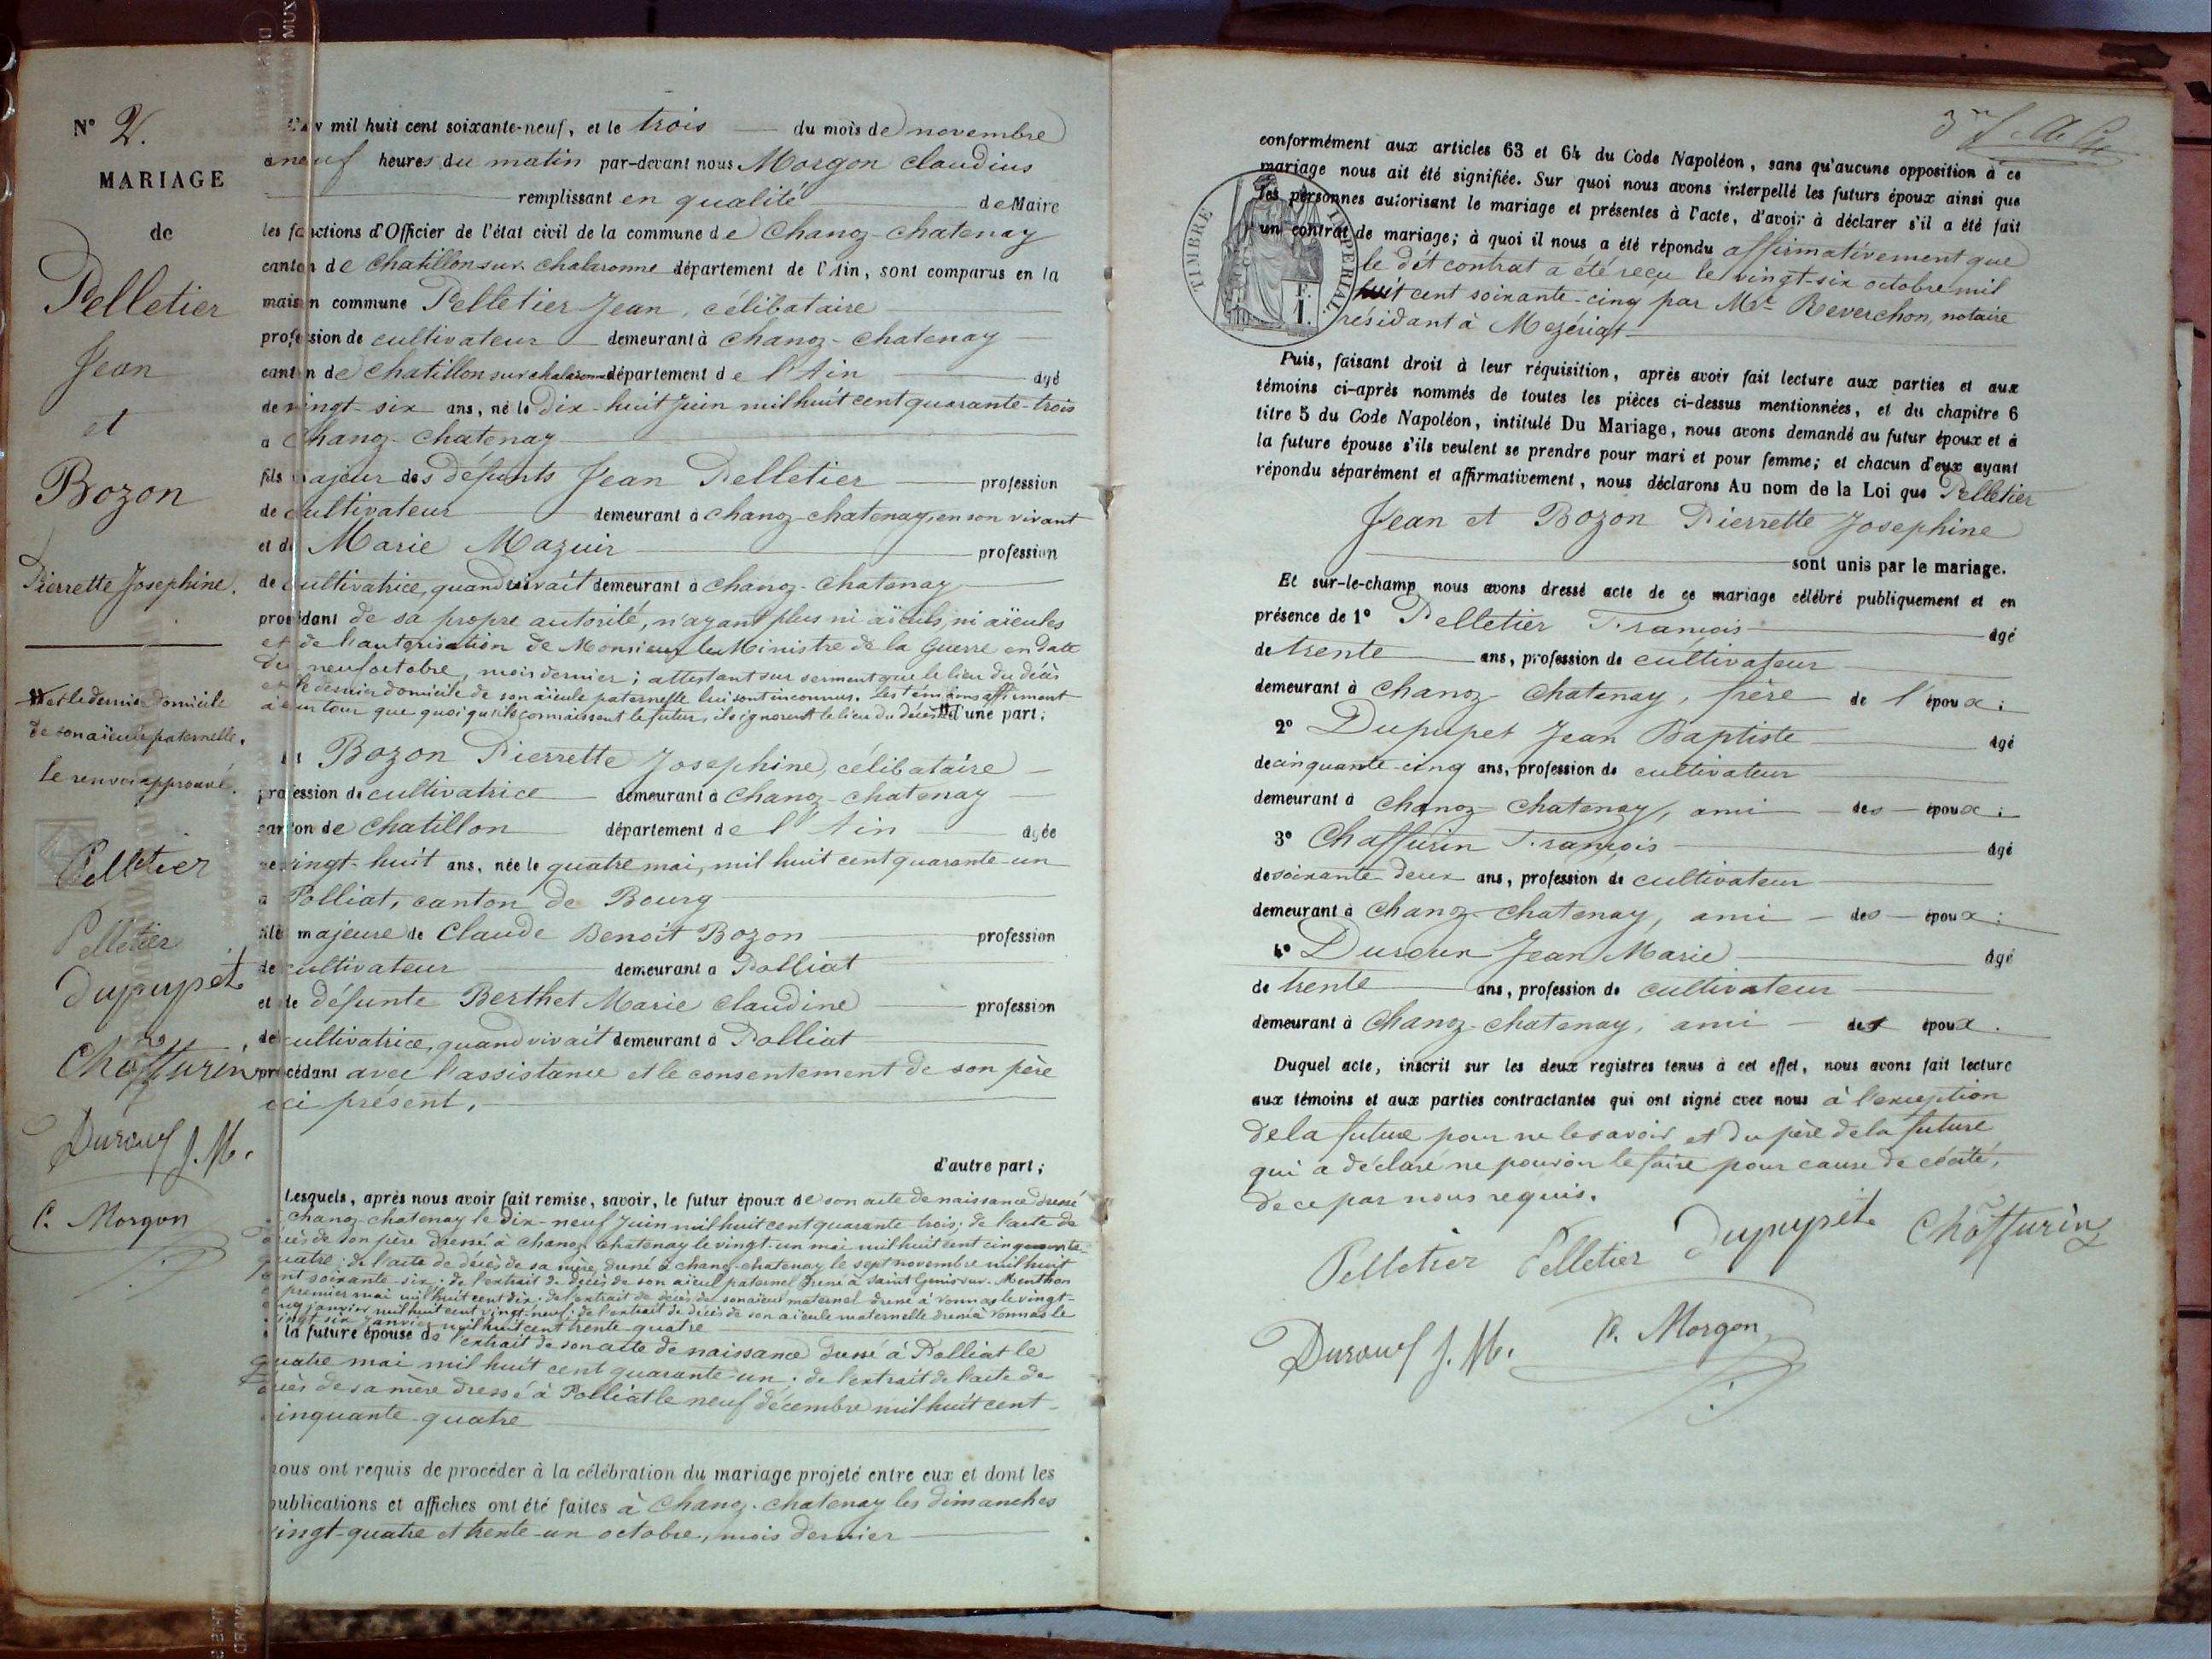 N° 2.
MARIAGE
de
Pelletier
Jean
et
Bozon
Pierrette Josephine.
et le dernier domicile
de son aïeule paternelle.
le renvoi approuvé.
Pelletier
Pelletier
Dupupet
Chaffurin
Duroux J. M.
C. Morgon
L'an mil huit cent soixante-neuf, et le trois du mois de novembre
à neuf heures du matin par-devant nous Morgon Claudius
remplissant en qualité de Maire
les fonctions d'Officier de l'état civil de la commune de Chanoz-Chatenay
canton de Chatillon sur Chalaronne département de l'Ain, sont comparus en la
maison commune Pelletier Jean, célibataire
profession de cultivateur demeurant à Chanoz-Chatenay
canton de Chatillon sur Chalaronne département de l'Ain âgé
de vingt-six ans, né le dix-huit Juin mil huit cent quarante-trois
à Chanoz-Chatenay
fils majeur des défunts Jean Pelletier profession
de cultivateur demeurant à Chanoz-Chatenay, en son vivant
et de Marie Mazuir profession
de cultivatrice, quand vivait demeurant à Chanoz-Chatenay
procédant de sa propre autorité, n'ayant plus ni aïeuls, ni aïeules
et de l'autorisation de Monsieur le Ministre de la Guerre en date
du neuf octobre, mois dernier; attestant sur serment que le lieu du décès
et le dernier domicile de son aïeule paternelle lui sont inconnus. Les témoins affirment
à leur tour que quoiqu'ils connaissent le futur, ils ignorent le lieu du décès d'une part;
et Bozon Pierrette Josephine, célibataire
profession de cultivatrice demeurant à Chanoz-Chatenay
canton de Chatillon département de l'Ain âgée
de vingt-huit ans, née le quatre mai, mil huit cent quarante-un
à Polliat, canton de Bourg
fille majeure de Claude Benoit Bozon profession
de cultivateur demeurant à Polliat
et de défunte Berthet Marie Claudine profession
de cultivatrice, quand vivait demeurant à Polliat
procédant avec l'assistance et le consentement de son père
ici présent,
d'autre part;
Lesquels, après nous avoir fait remise, savoir, le futur époux de son acte de naissance dressé
à Chanoz-Chatenay le dix-neuf Juin mil huit cent quarante-trois; de l'acte de
décès de son père dressé à Chanoz Chatenay le vingt-un mai mil huit cent cinquante-
quatre; de l'acte de décès de sa mère, dressé à Chanoz-Chatenay le sept novembre mil huit
cent soixante-six; de l'extrait de décès de son aïeul paternel dressé à Saint Genis sur Menthon
le premier mai mil huit cent dix; de l'extrait de décès de son aïeul maternel dressé à Vonnas le vingt-
cinq janvier mil huit cent vingt-neuf; de l'extrait de décès de son aïeule maternelle dressé à Vonnas le
vingt six Janvier mil huit cent trente-quatre
et la future épouse de l'extrait de son acte de naissance dressé à Polliat le
quatre mai mil huit cent quarante-un; de l'extrait de l'acte de
décès de sa mère dressé à Polliat le neuf décembre mil huit cent
cinquante-quatre
nous ont requis de procéder à la célébration du mariage projeté entre eux et dont les
publications et affiches ont été faites à Chanoz-Chatenay les dimanches
vingt-quatre et trente-un octobre, mois dernier
conformément aux articles 63 et 64 du Code Napoléon, sans qu'aucune opposition à ce
mariage nous ait été signifiée. Sur quoi nous avons interpellé les futurs époux ainsi que
les personnes autorisant le mariage et présentes à l'acte, d'avoir à déclarer s'il a été fait
un contrat de mariage; à quoi il nous a été répondu affirmativement que
le dit contrat a été reçu le vingt-six octobre mil
huit cent soixante-cinq par Me Reverchon, notaire
résidant à Mezériat
TIMBRE IMPÉRIAL
1 F.
Puis, faisant droit à leur réquisition, après avoir fait lecture aux parties et aux
témoins ci-après nommés de toutes les pièces ci-dessus mentionnées, et du chapitre 6
titre 5 du Code Napoléon, intitulé Du Mariage, nous avons demandé au futur époux et à
la future épouse s'ils veulent se prendre pour mari et pour femme; et chacun d'eux ayant
répondu séparément et affirmativement, nous déclarons Au nom de la Loi que Pelletier
Jean et Bozon Pierrette Josephine
sont unis par le mariage.
Et sur-le-champ nous avons dressé acte de ce mariage célébré publiquement et en
présence de 1° Pelletier François âgé
de trente ans, profession de cultivateur
demeurant à Chanoz-Chatenay, frère de l'époux;
2° Dupupet Jean Baptiste âgé
de cinquante-cinq ans, profession de cultivateur
demeurant à Chanoz-Chatenay, ami des époux;
3° Chaffurin François âgé
de soixante-deux ans, profession de cultivateur
demeurant à Chanoz-Chatenay, ami des époux;
4° Duroux Jean Marie âgé
de trente ans, profession de cultivateur
demeurant à Chanoz-Chatenay, ami des époux.
Duquel acte, inscrit sur les deux registres tenus à cet effet, nous avons fait lecture
aux témoins et aux parties contractantes qui ont signé avec nous à l'exception
de la future pour ne le savoir et du père de la future
qui a déclaré ne pouvoir le faire pour cause de cécité,
de ce par nous requis.
Pelletier Pelletier Dupupet Chaffurin
Duroux J. M. C. Morgon